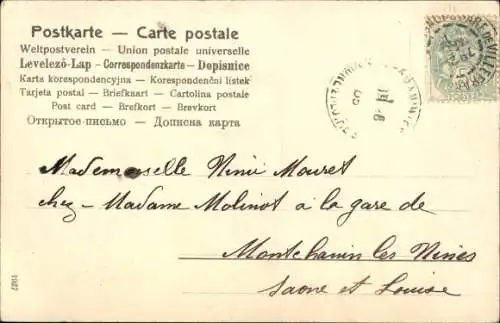 Postkarte — Carte postale
Weltpostverein — Union postale universelle
Levelező-Lap — Correspondenzkarte — Dopisnice
Karta korespondencyjna — Korespondenční listek
Tarjeta postal — Briefkaart — Cartolina postale
Post card — Brefkort — Brevkort
Открытое письмо — Дописна карта
Mademoiselle Nini Mouret
chez — Madame Molinot à la gare de
Montchanin les Mines
Saone et Louise
1907